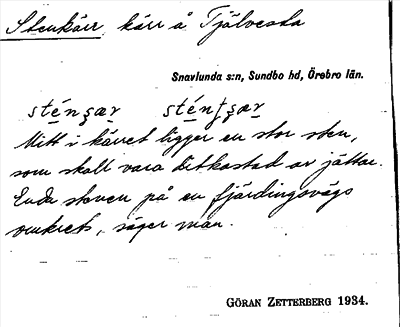 Stenkärr, kärr å Tjälvesta
Snavlunda s:n, Sundbo hd, Örebro län.
sténʂær sténʈʂær
Mitt i kärret ligger en stor sten,
som skall vara ditkastad av jättar.
Enda stenen på en fjärdingsvägs
omkrets, säger man.
GÖRAN ZETTERBERG 1934.